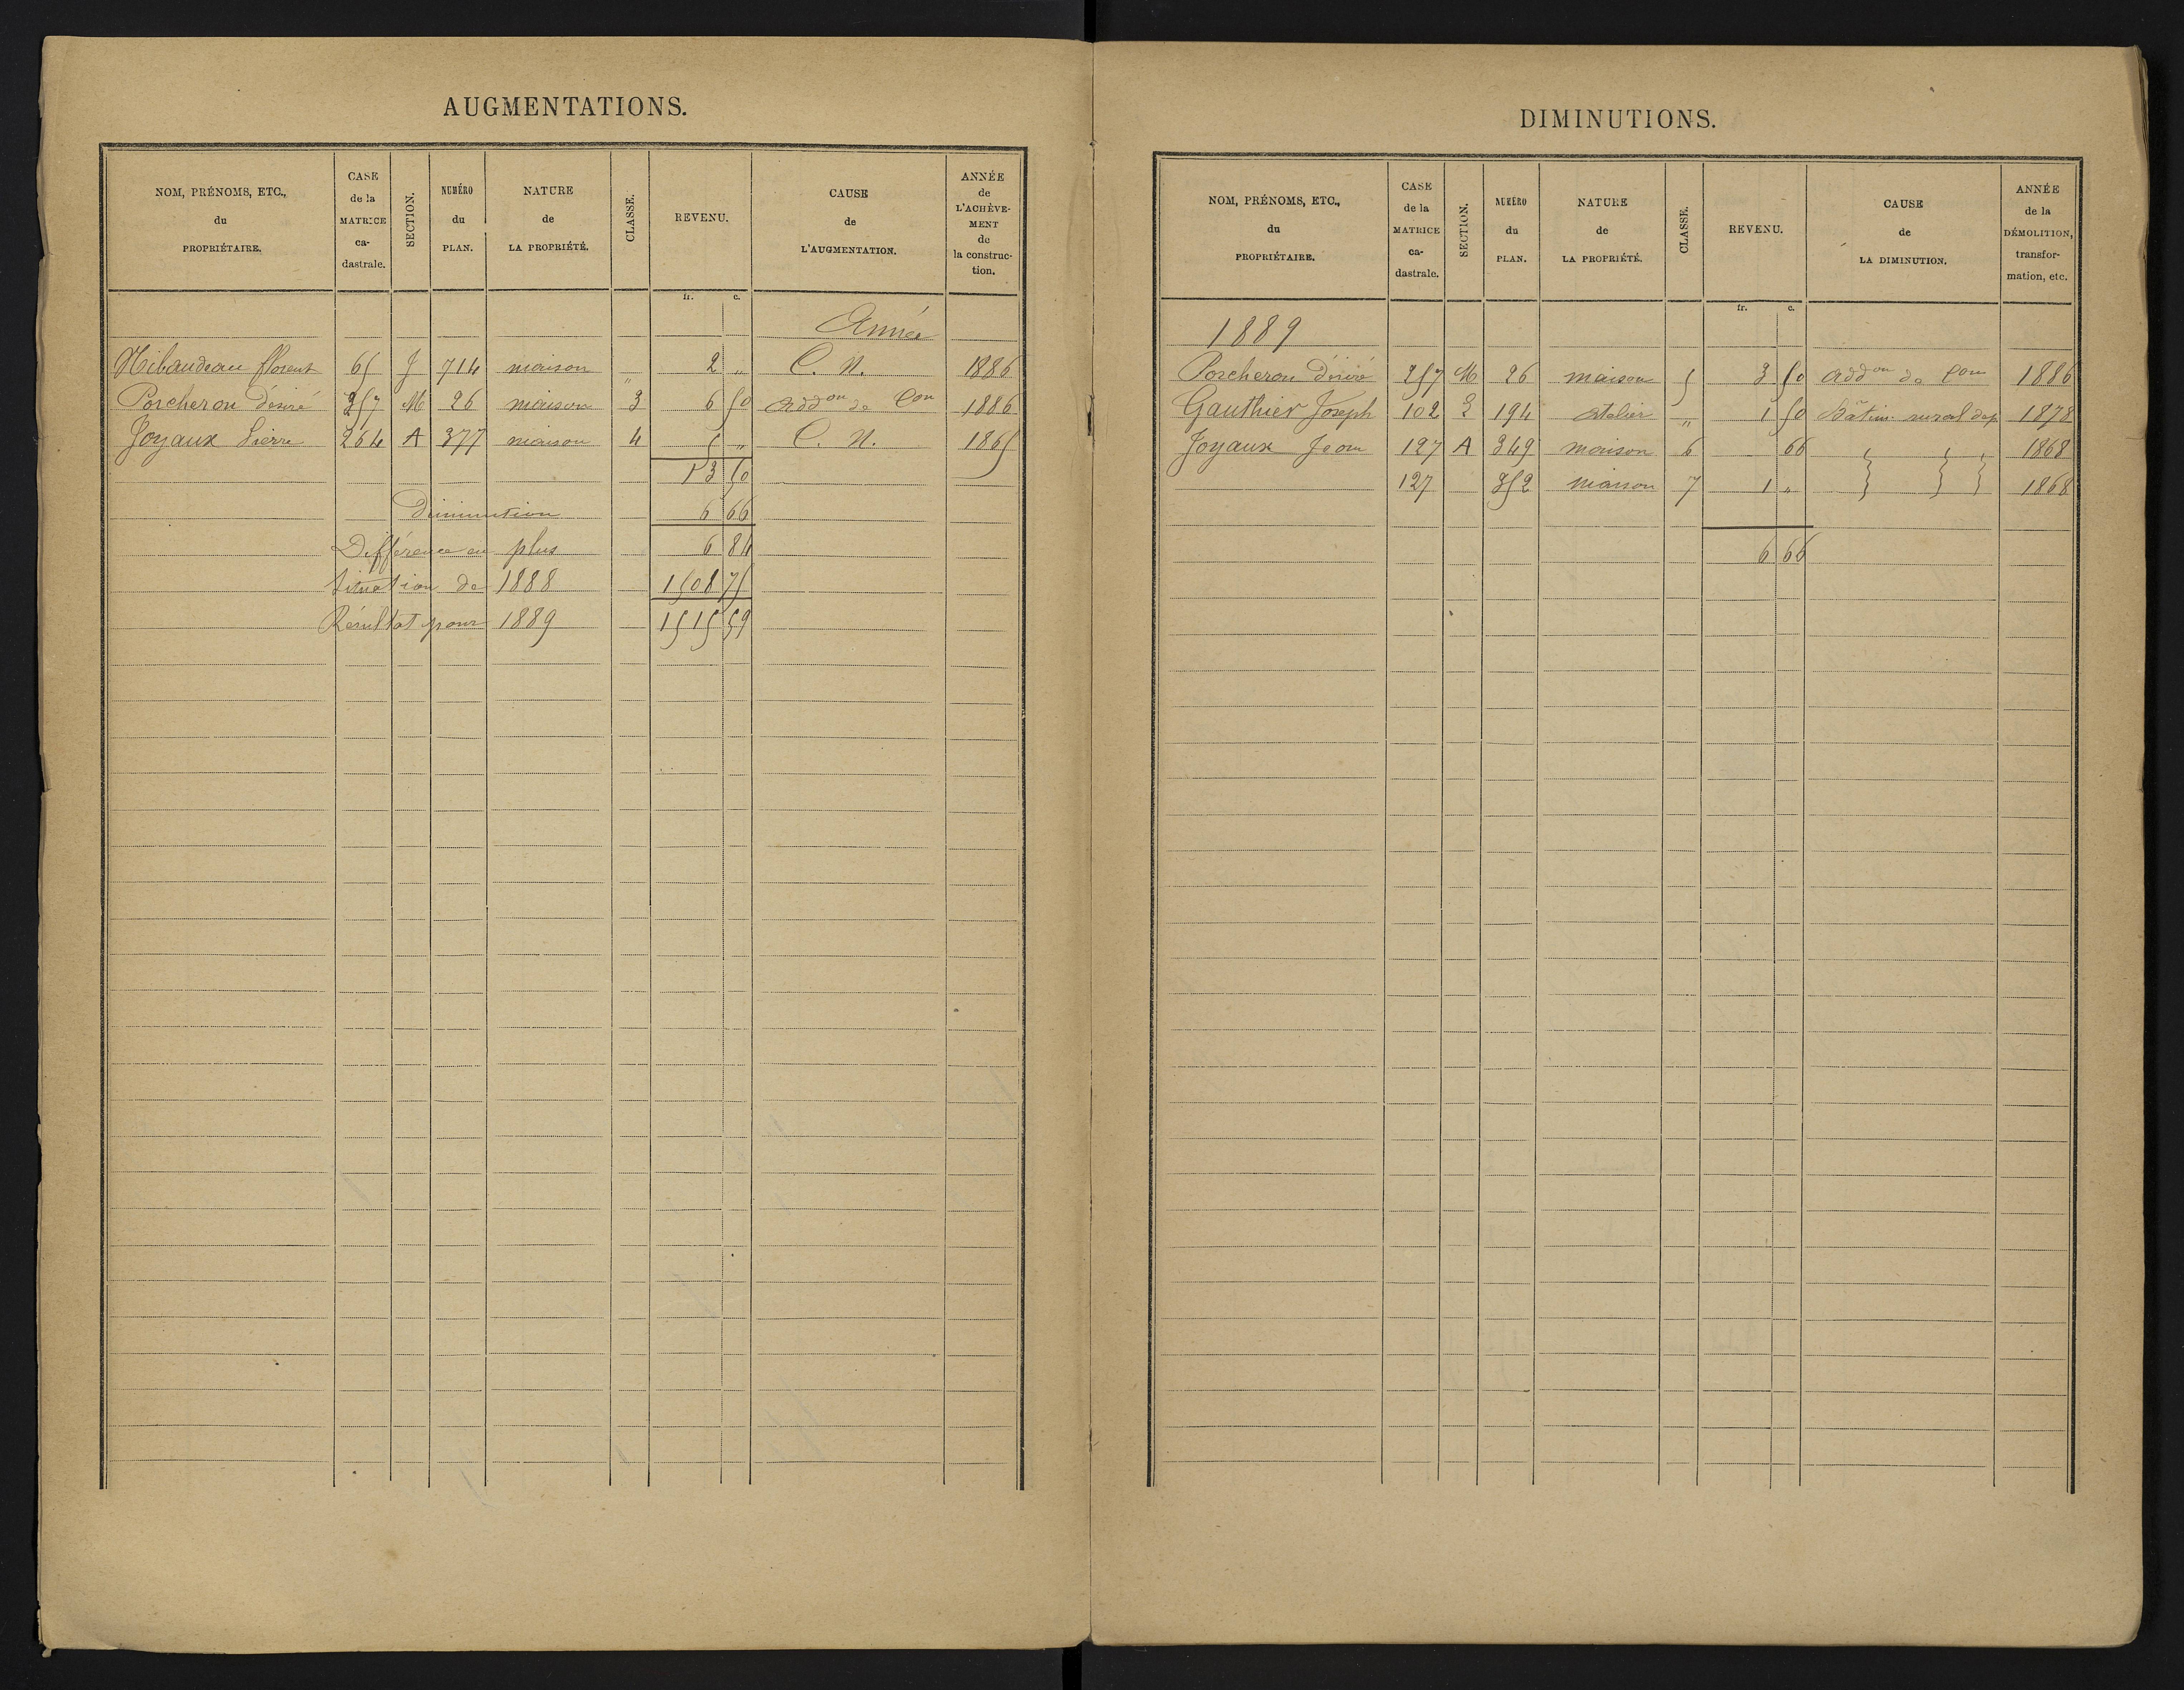 AUGMENTATIONS.
NOM, PRÉNOMS, ETC., du PROPRIÉTAIRE. CASE de la MATRICE ca- dastrale. SECTION. NUMÉRO du PLAN. NATURE de LA PROPRIÉTÉ. CLASSE. REVENU. CAUSE de L'AUGMENTATION. ANNÉE de L'ACHÈVE- MENT de la construc- tion.
fr. c.
Année
Florent 65 J 714 maison " 2 " C. N. 1886
Porcheron Désiré 257 M 26 maison 3 6 50 Addon de Con 1886
Joyaux Pierre 264 A 377 maison 4 5 " C. N. 1865
13 50
Diminution 6 66
Différence en plus 6 84
Situation de 1888 1508 75
Résultat pour 1889 1515 59
DIMINUTIONS.
NOM, PRÉNOMS, ETC., du PROPRIÉTAIRE. CASE de la MATRICE ca- dastrale. SECTION. NUMÉRO du PLAN. NATURE de LA PROPRIÉTÉ. CLASSE. REVENU. CAUSE de LA DIMINUTION. ANNÉE de la DÉMOLITION, transfor- mation, etc.
fr. c.
1889
Porcheron Désiré 257 M 26 maison 5 3 50 Addon de Con 1886
Gauthier Joseph 102 194 atelier " 1 50 Bâtim rural dep 1878
Joyaux Jean 127 A 349 maison 6 66 1868
127 352 maison 7 1 " } } } 1868
6 66